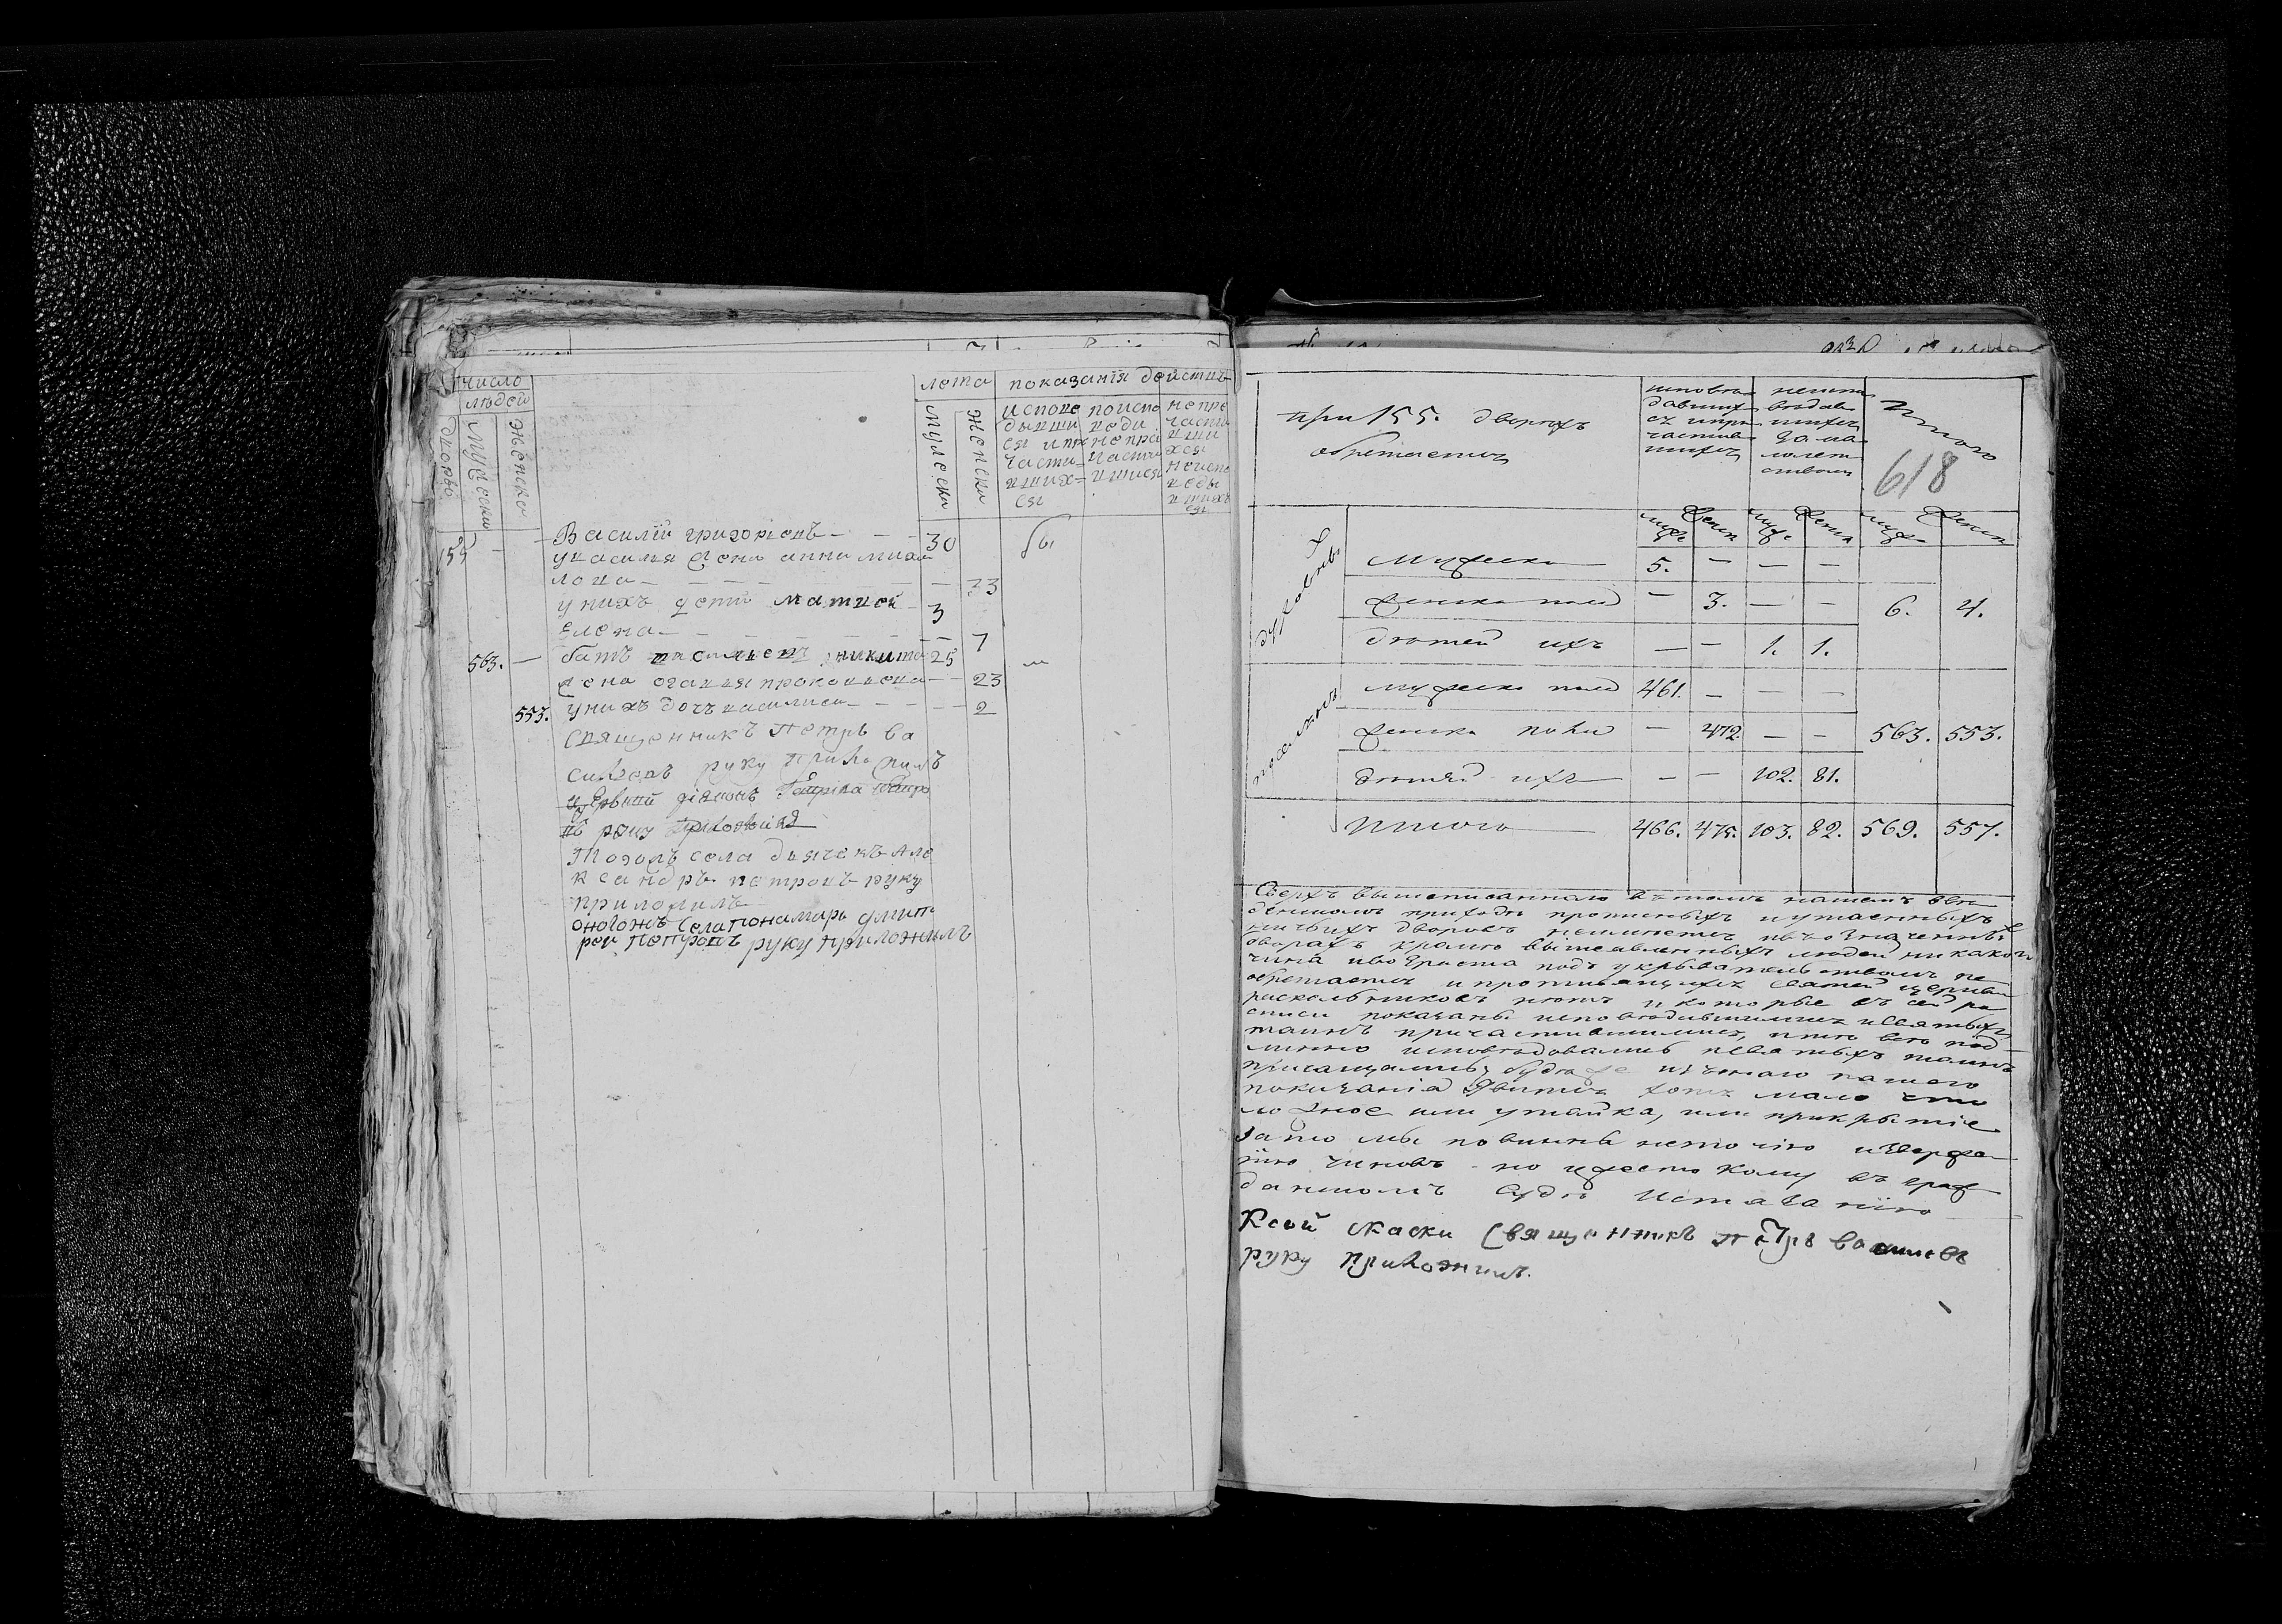 число
людей
дворовъ
мужеска
женска
лета
мужеска
женска
показанїя действъ
испове
давши
ся и при
части
вших=
ся
поиспо
веди
непри
части
вшися
непри
части
вши
хся
неиспо
веды
вшихъ
ся
155 — — Василїй григориевъ — — 30 бы
у василья жена анна михаи
лова — — — — — 23
у нихъ дети матвей — 3
Елена — — — — — 7
563. — батъ васильевъ никита 25
жена агафия прокопиева — — 23
553. у нихъ дочь василиса — — — 2
священникъ Петръ ва
сильевъ руку приложилъ
руку приложилъ
Тогожъ села дьячекъ але
ксандръ петровъ руку
приложилъ
оногожъ села понамарь дмит
рей Петровъ руку приложилъ
при 155. дворахъ
обретаетца
исповѣ
давших
съ и при
частив
шихся
неиспо
вѣдав
шихся
за ма
лолет
ством
Итого
618
муже женс муже женс муже женс
духовны
мужеска — 5. — — —
женска полу — 3. — — 6. 4.
дѣтей ихъ — — 1. 1.
мужеска полу 461. — — —
женска полу — 472. — — 563. 553.
дѣтей ихъ — — 102. 81.
Итого — 466. 475. 103. 82. 569. 557.
Сверхъ вышеписаннаго въ томъ нашемъ вѣ
денномъ приходѣ прописныхъ и утаенныхъ
ничьихъ дворовъ неимеетца и въ означенныхъ
дворахъ кроме вышеявленныхъ людей никакого
чина и возраста подъ укрывательствомъ не
обретаетца и противящихся святей церкви
раскольниковъ нетъ и которые въ сей ро
списи показаны исповѣдавшимися и святыхъ
таинъ причастившимися, и те всѣ под
линно исповѣдовались и святыхъ таинъ
причащались, буде же изъ чего нашего
показания явитца хотя мало что
ложное или утайка, или прикрытие
за то мы повинны неточию изверже
нию чиновъ — но и жестокому въ граж
данскомъ судѣ истязанию
К сей скаски священникъ петръ василевъ
руку приложилъ.